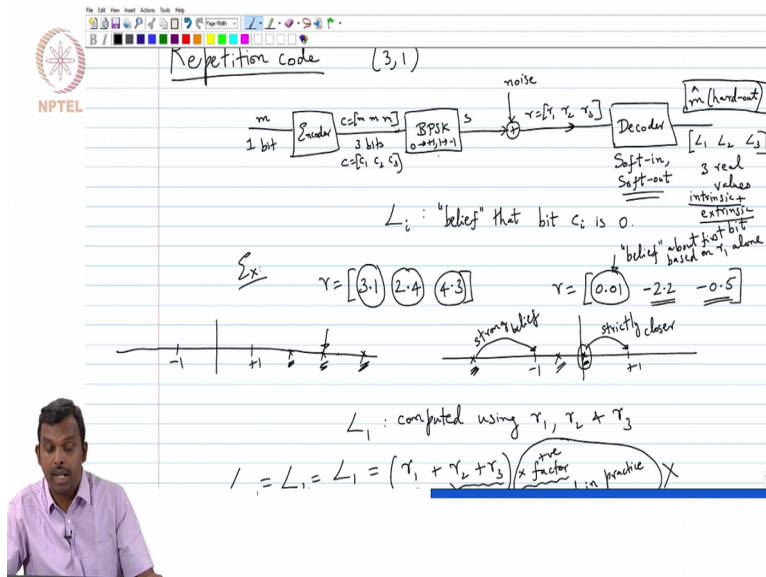 File Edit View Insert Actions Tools Help
Page Width
B I
NPTEL
Repetition code (3,1)
noise
m
1 bit
Encoder
c=[m m m]
3 bits
c=[c₁ c₂ c₃]
BPSK
0→+1, 1→-1
s
+
r=[r₁ r₂ r₃]
Decoder
Soft-in,
Soft-out
m̂ (hard-out)
[L₁ L₂ L₃]
3 real
values
intrinsic +
extrinsic
Lᵢ : "belief" that bit cᵢ is 0.
"belief" about first bit
based on r₁ alone
Ex:
r = [3.1 2.4 4.3]
r = [0.01 -2.2 -0.5]
-1 +1
strong belief
strictly closer
-1 +1
L₁ : computed using r₁, r₂ & r₃
L₁ = (r₁ + r₂ + r₃) (× +ve
factor
in practice
X